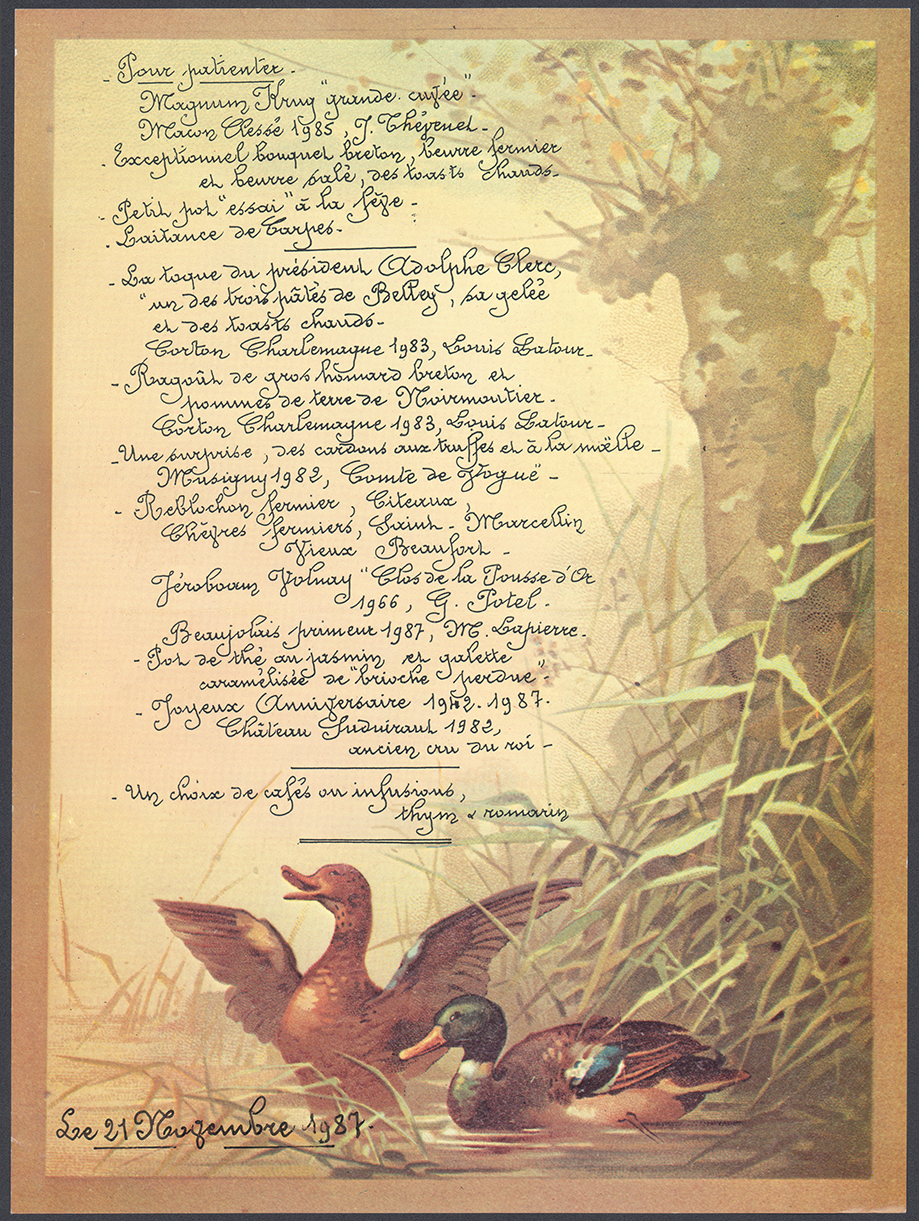 - Pour patienter -
Magnum Krug "grande cuvée" -
Macon Clessé 1985, J. Thévenet -
- Exceptionnel bouquet breton, beurre fermier
et beurre salé, des toasts chauds -
- Petit pot "essai" à la fève -
- Laitance de Carpes -
- La toque du président Adolphe Clerc,
"un des trois pâtés de Belley", sa gelée
et des toasts chauds -
Corton Charlemagne 1983, Louis Latour -
- Ragoût de gros homard breton et
pommes de terre de Noirmoutier -
Corton Charlemagne 1983, Louis Latour -
- Une surprise, des cardons aux truffes et à la moëlle -
Musigny 1982, Comte de Vogué -
- Reblochon fermier, Citeaux,
Chèvres fermiers, Saint-Marcellin
Vieux Beaufort -
Jéroboam Volnay "Clos de la Pousse d'Or
1966, G. Potel -
Beaujolais primeur 1987, M. Lapierre -
- Pot de thé au jasmin et galette
caramélisée de "brioche perdue" -
- Joyeux Anniversaire 1942 - 1987 -
Château Suduiraut 1982,
ancien cru du roi -
- Un choix de cafés ou infusions,
thym & romarin
Le 21 Novembre 1987 -